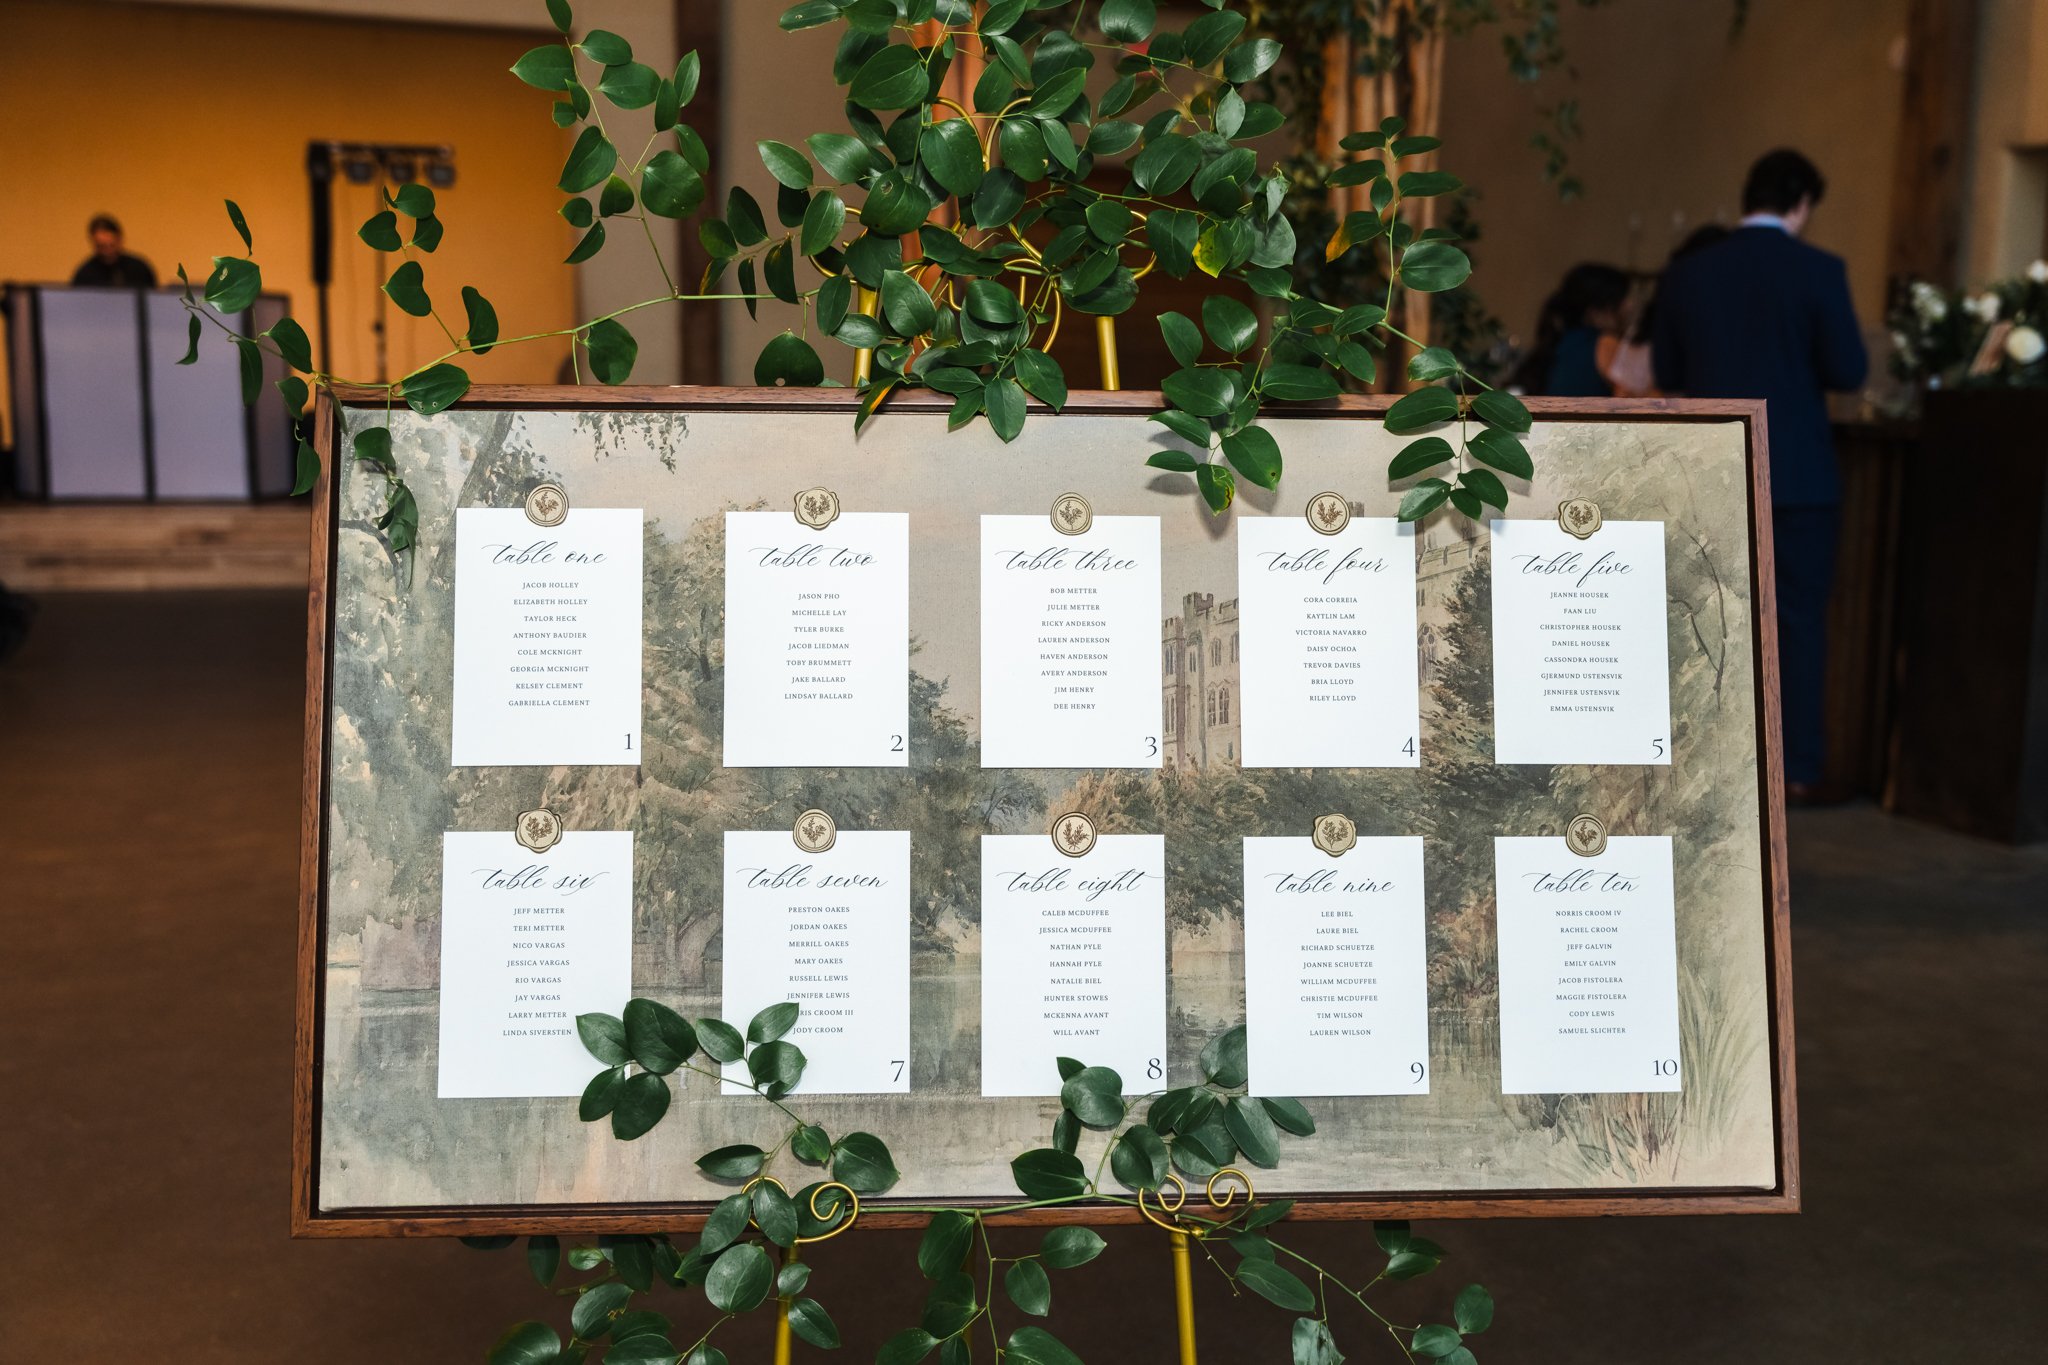 table one
JACOB HOLLEY
ELIZABETH HOLLEY
TAYLOR HECK
ANTHONY BAUDIER
COLE MCKNIGHT
GEORGIA MCKNIGHT
KELSEY CLEMENT
GABRIELLA CLEMENT
1
table two
JASON PHO
MICHELLE LAY
TYLER BURKE
JACOB LIEDMAN
TOBY BRUMMETT
JAKE BALLARD
LINDSAY BALLARD
2
table three
BOB METTER
JULIE METTER
RICKY ANDERSON
LAUREN ANDERSON
HAVEN ANDERSON
AVERY ANDERSON
JIM HENRY
DEE HENRY
3
table four
CORA CORREIA
KAYTLIN LAM
VICTORIA NAVARRO
DAISY OCHOA
TREVOR DAVIES
BRIA LLOYD
RILEY LLOYD
4
table five
JEANNE HOUSEK
FAAN LIU
CHRISTOPHER HOUSEK
DANIEL HOUSEK
CASSONDRA HOUSEK
GJERMUND USTENSVIK
JENNIFER USTENSVIK
EMMA USTENSVIK
5
table six
JEFF METTER
TERI METTER
NICO VARGAS
JESSICA VARGAS
RIO VARGAS
JAY VARGAS
LARRY METTER
LINDA SIVERSTEN
table seven
PRESTON OAKES
JORDAN OAKES
MERRILL OAKES
MARY OAKES
RUSSELL LEWIS
JENNIFER LEWIS
CROOM III
JODY CROOM
7
table eight
CALEB MCDUFFEE
JESSICA MCDUFFEE
NATHAN PYLE
HANNAH PYLE
NATALIE BIEL
HUNTER STOWES
MCKENNA AVANT
WILL AVANT
8
table nine
LEE BIEL
LAURE BIEL
RICHARD SCHUETZE
JOANNE SCHUETZE
WILLIAM MCDUFFEE
CHRISTIE MCDUFFEE
TIM WILSON
LAUREN WILSON
9
table ten
NORRIS CROOM IV
RACHEL CROOM
JEFF GALVIN
EMILY GALVIN
JACOB FISTOLERA
MAGGIE FISTOLERA
CODY LEWIS
SAMUEL SLICHTER
10